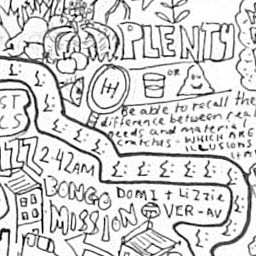 PLENTY
OR
Be able to recall the
difference between real
needs and material
crutches - WHICH ARE
ILLUSIONS
ST
2:42AM
BONGO
MISSION
Dom1 + Lizzie
VER-AV